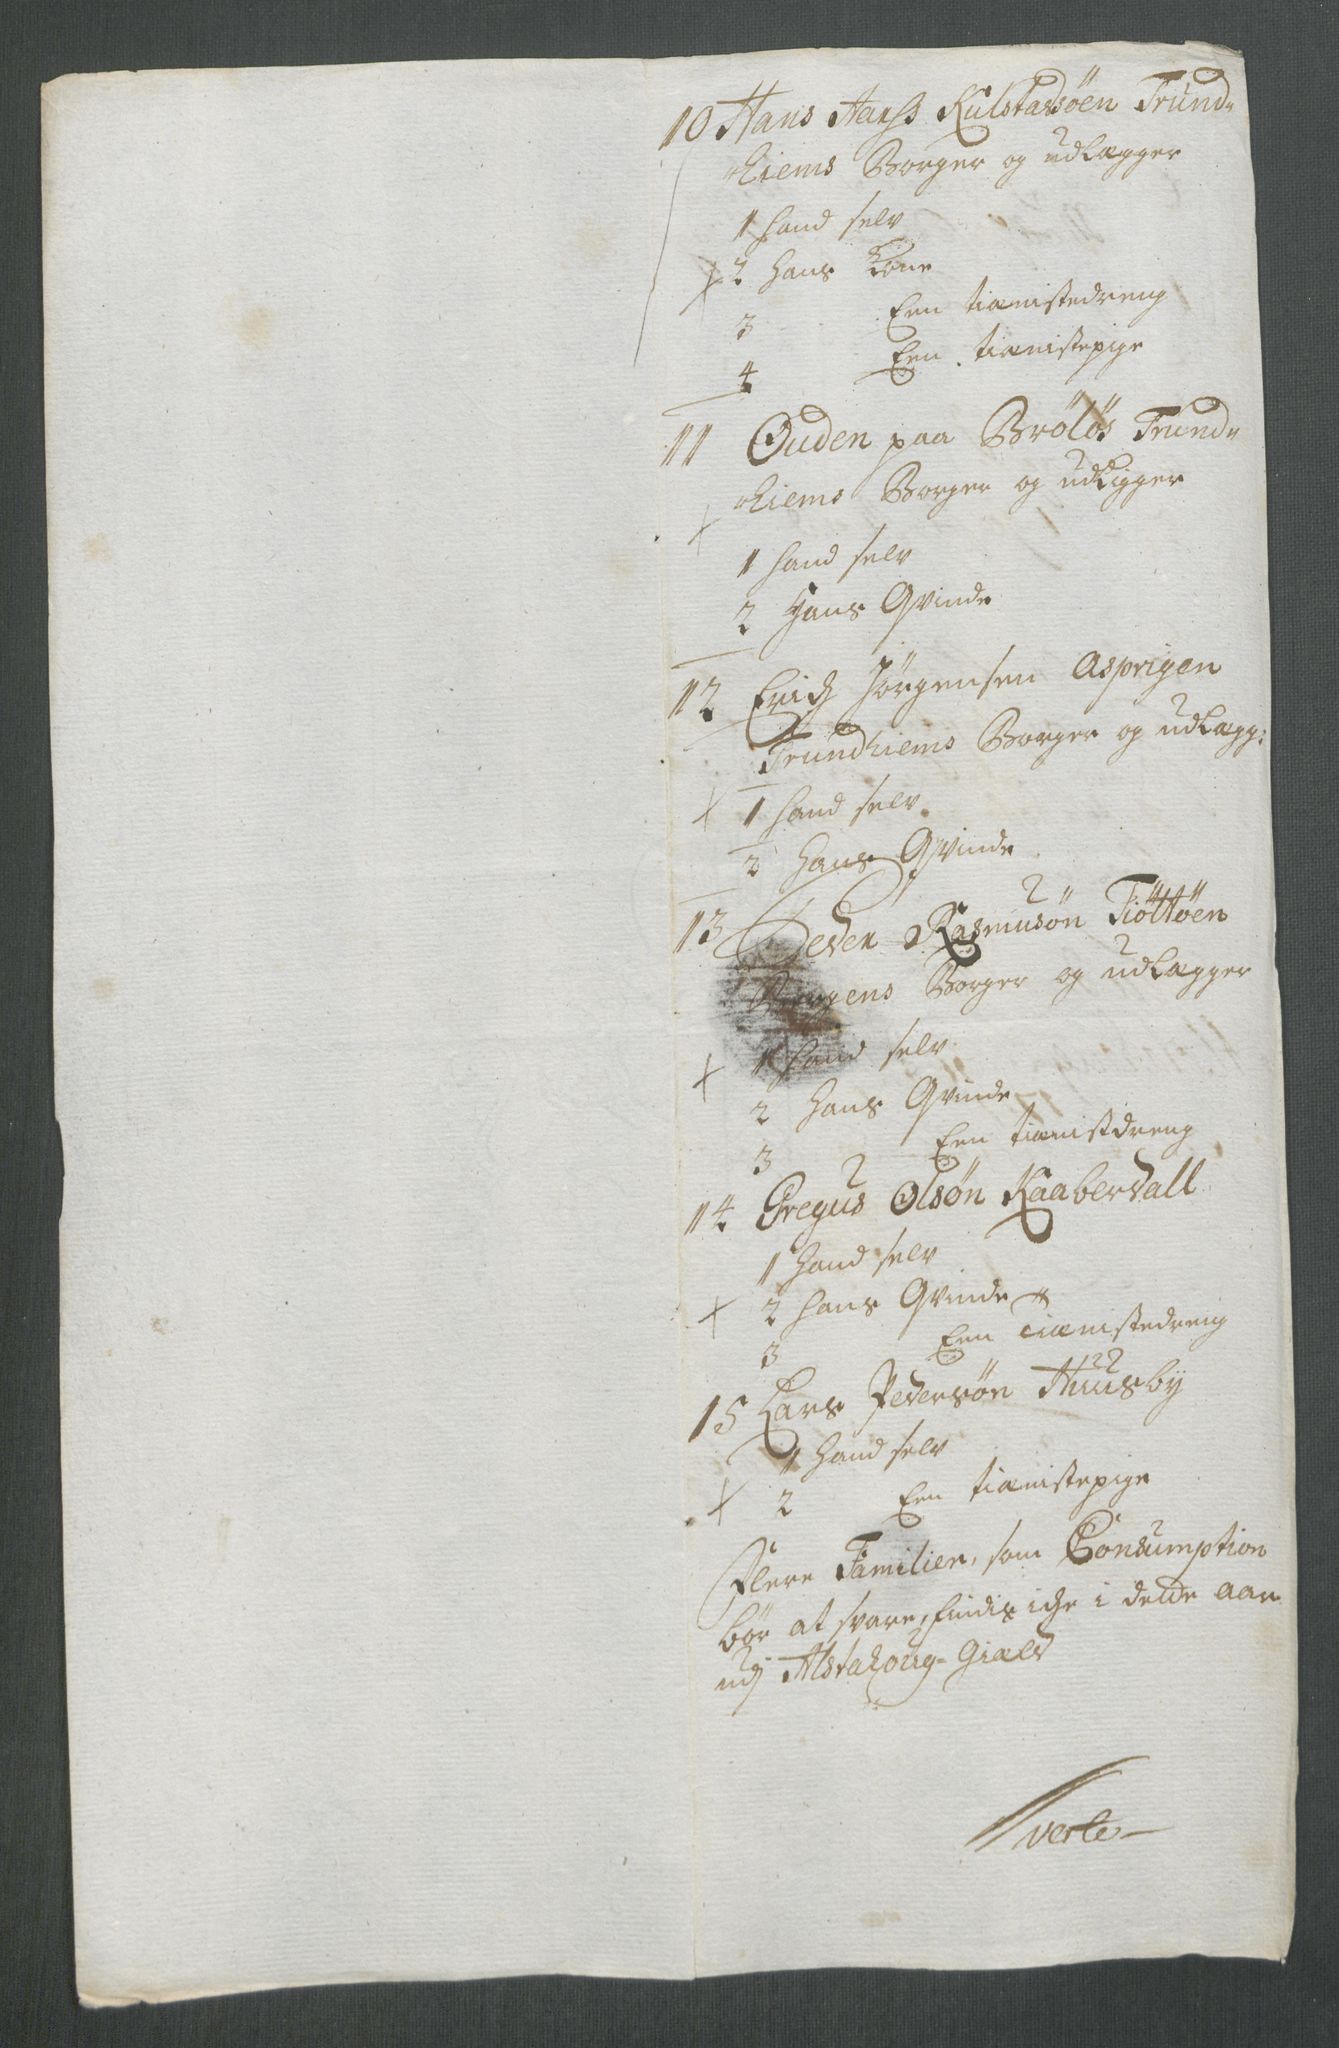 10 Hans Hanss Kulstadsöen Trund-
hiems Borger og udlægger
1 hand selv
2 hans Kone
3 Een tienistedreng
4 Een tienistepige
11 Ouden paa Brölös Trund-
hiems Borger og udligger
1 hand selv
2 Hans Qvinde
12 Erich Jörgensen Asprigen
Trundhiems Borger og udlægg:
1 hand selv
2 hans Qvinde
13 Peder Rasmusön Tiöttöen
Bergens Borger og udlægger
1 hand selv
2 hans Qvinde
3 Een tienistdreng
14 Gregus Olsøn Kaaberdall
1 hand selv
2 hans Qvinde
3 Een tienistedreng
15 Lars Pedersøn Huusby
1 hand selv
2 Een tienistepige
Flere Familier, som Consumption
bör at svare, findis iche i dette aar
udj Alstahoug-Gield
verte